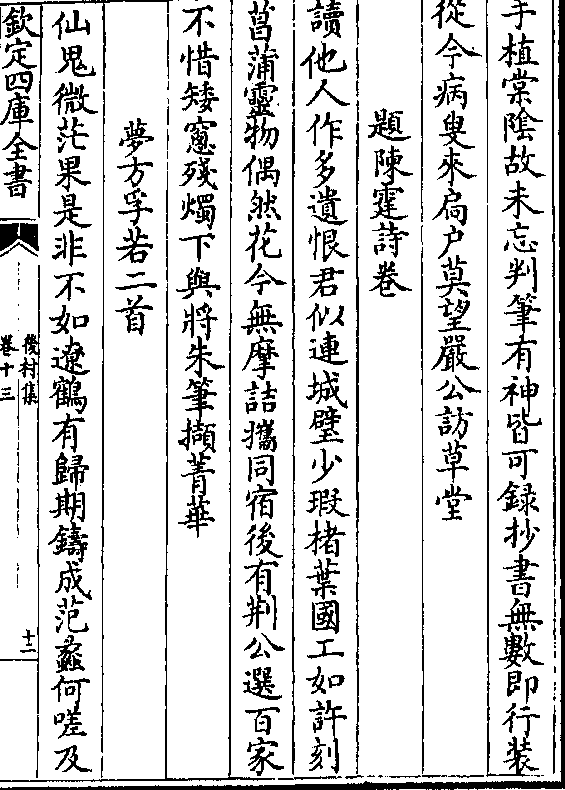 手植棠陰故未忘判筆有神皆可録抄書無數即行裝
從今病叟來扄户莫望嚴公訪草堂
題陳霆詩卷
讀他人作多遺恨君似連城璧少瑕楮葉國工如許刻
菖蒲靈物偶然花今無摩詰攜同宿後有荆公選百家
不惜矮窻殘燭下與將朱筆擷菁華
夢方孚若二首
仙鬼微茫果是非不如遼鶴有歸期鑄成范蠡何嗟及
欽定四庫全書
後村集
卷十三
十二